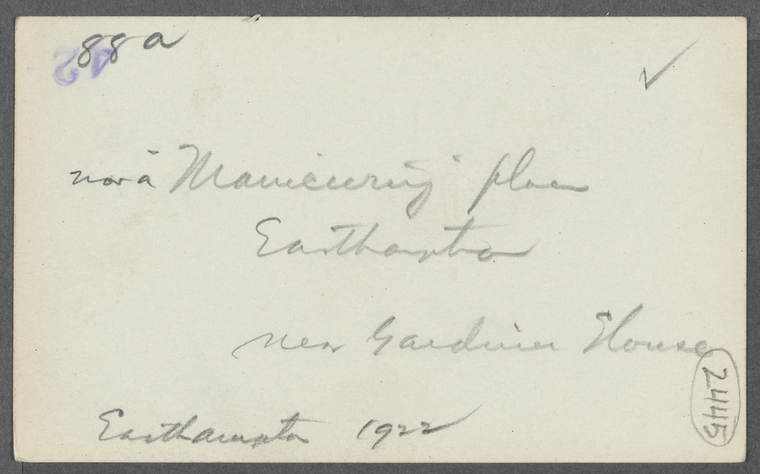 88a
42
✓
now a "Manicuring" place
Easthampton
near Gardiner House
2445
Easthampton 1922